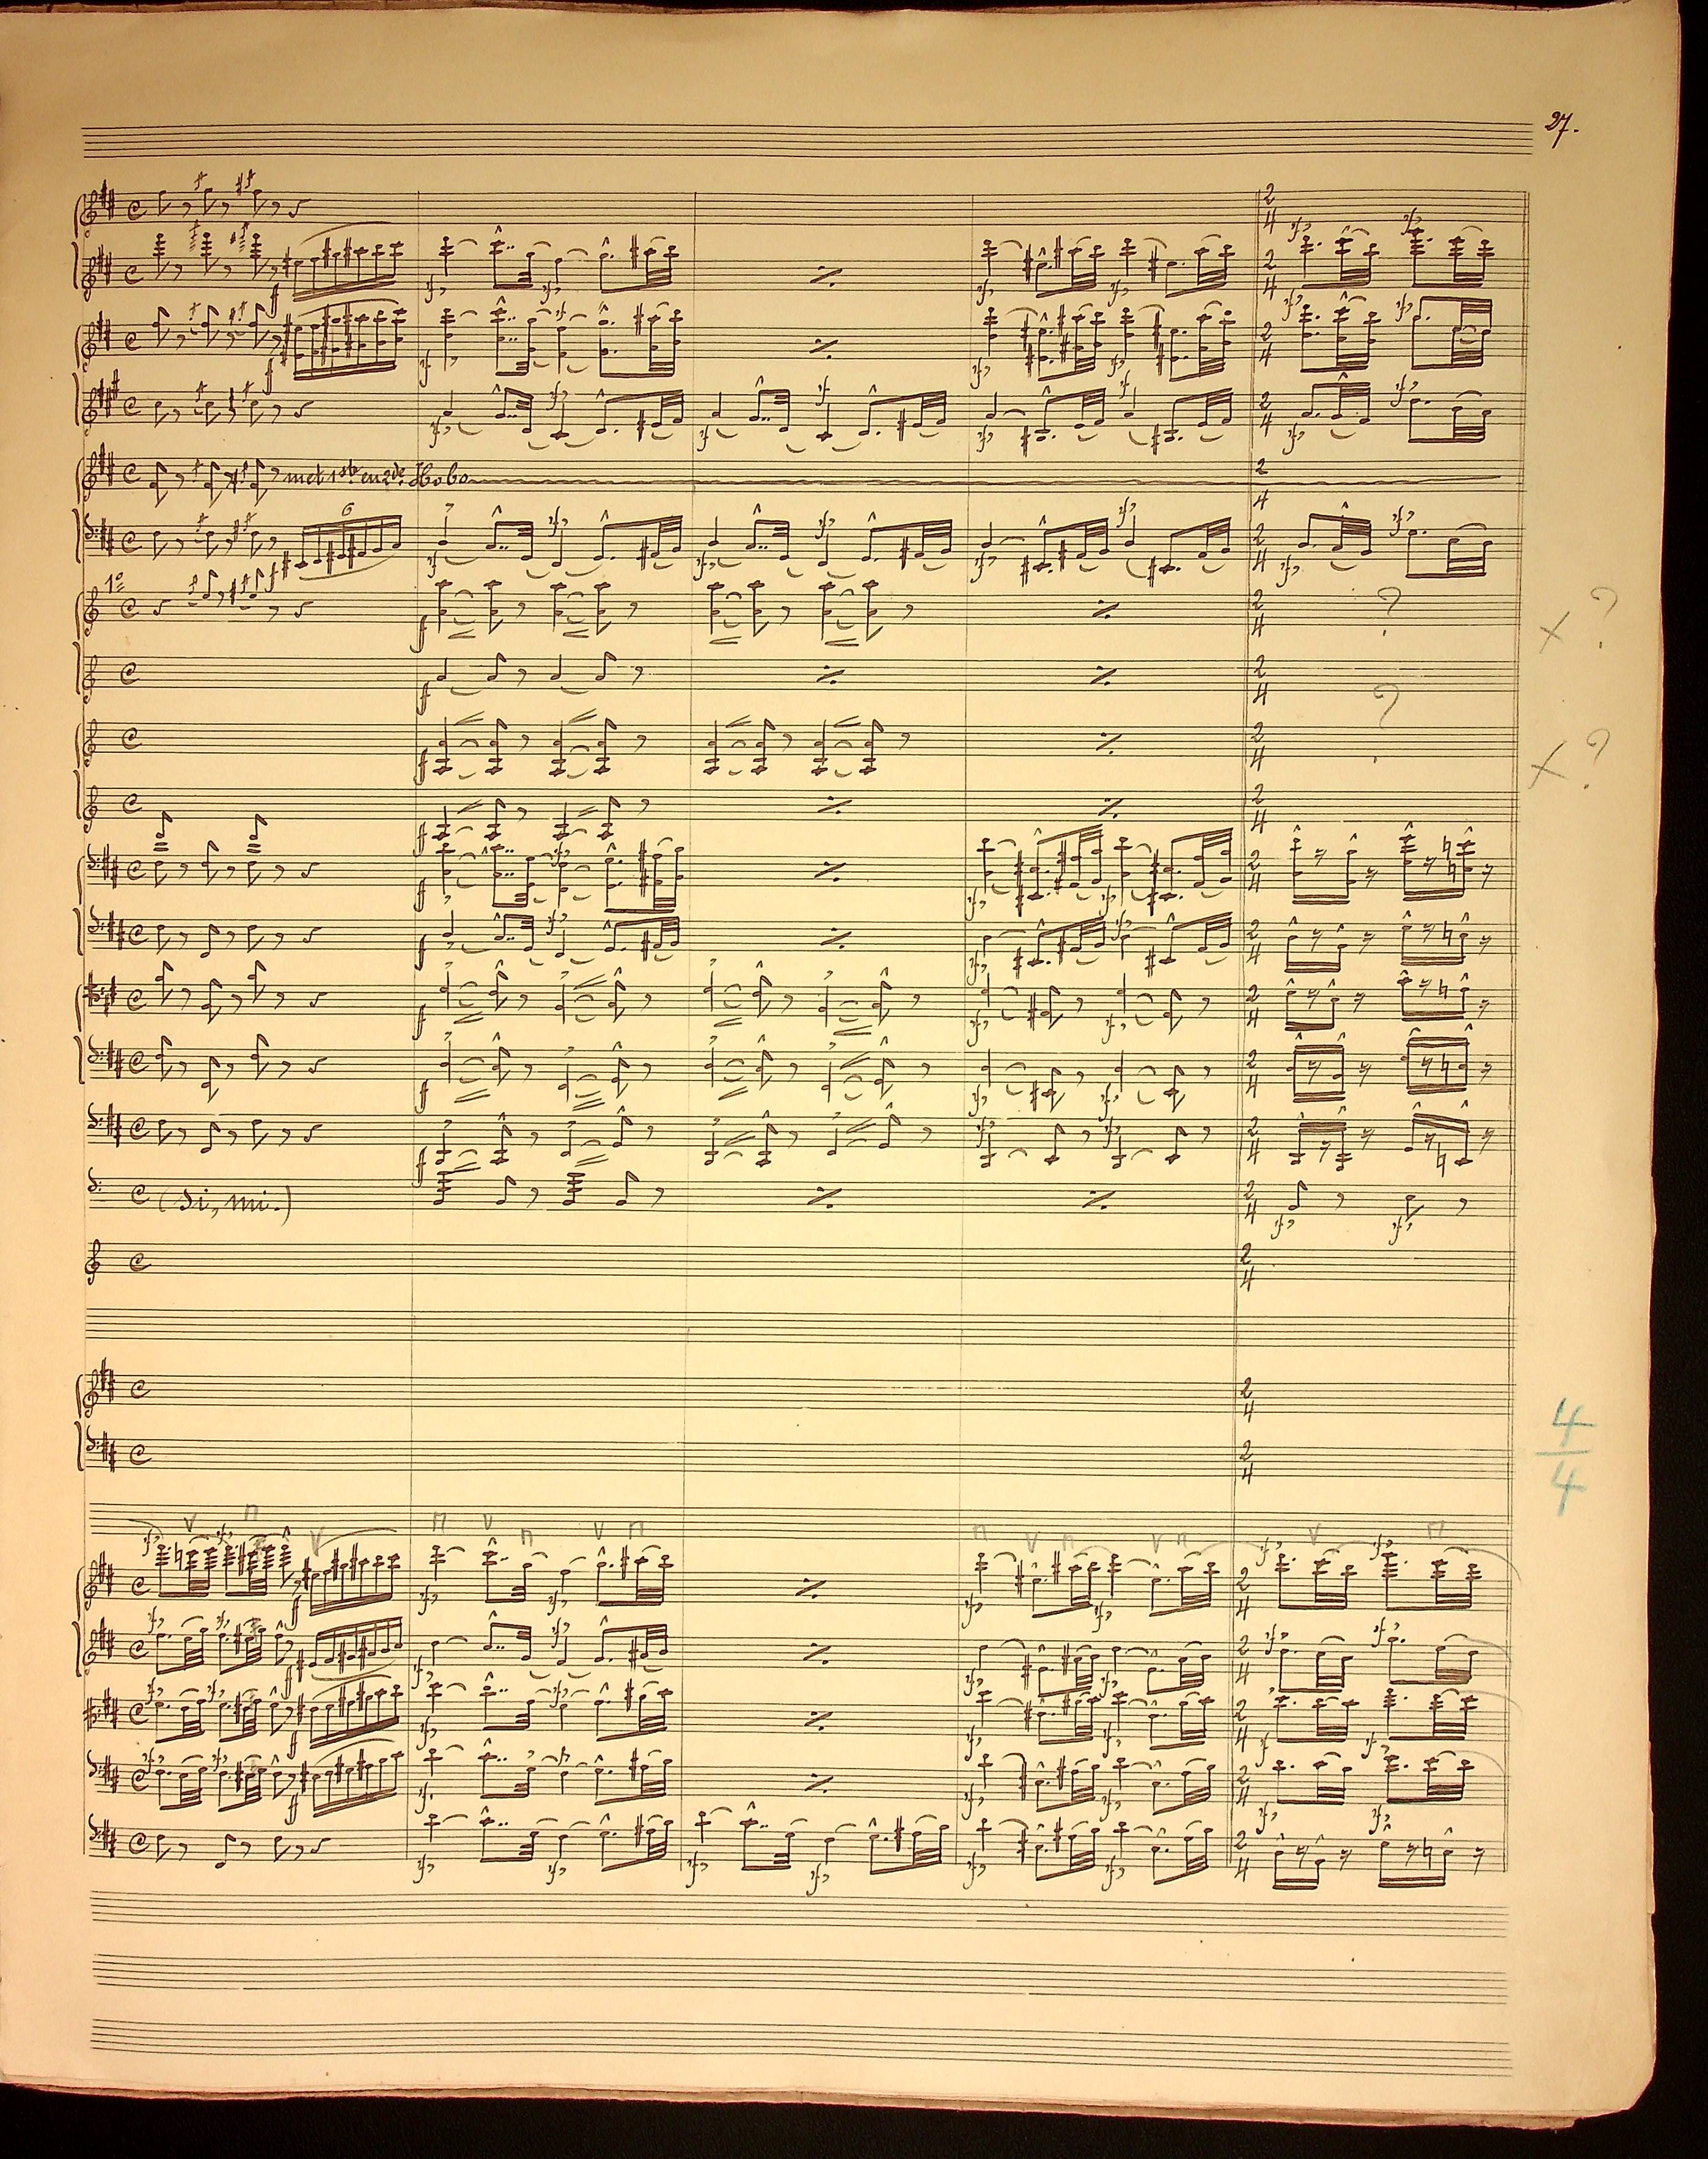 27.
met 1ste en 2de Hobo
6
1o
?
× ?
?
× ?
(Si, mi.)
4
4